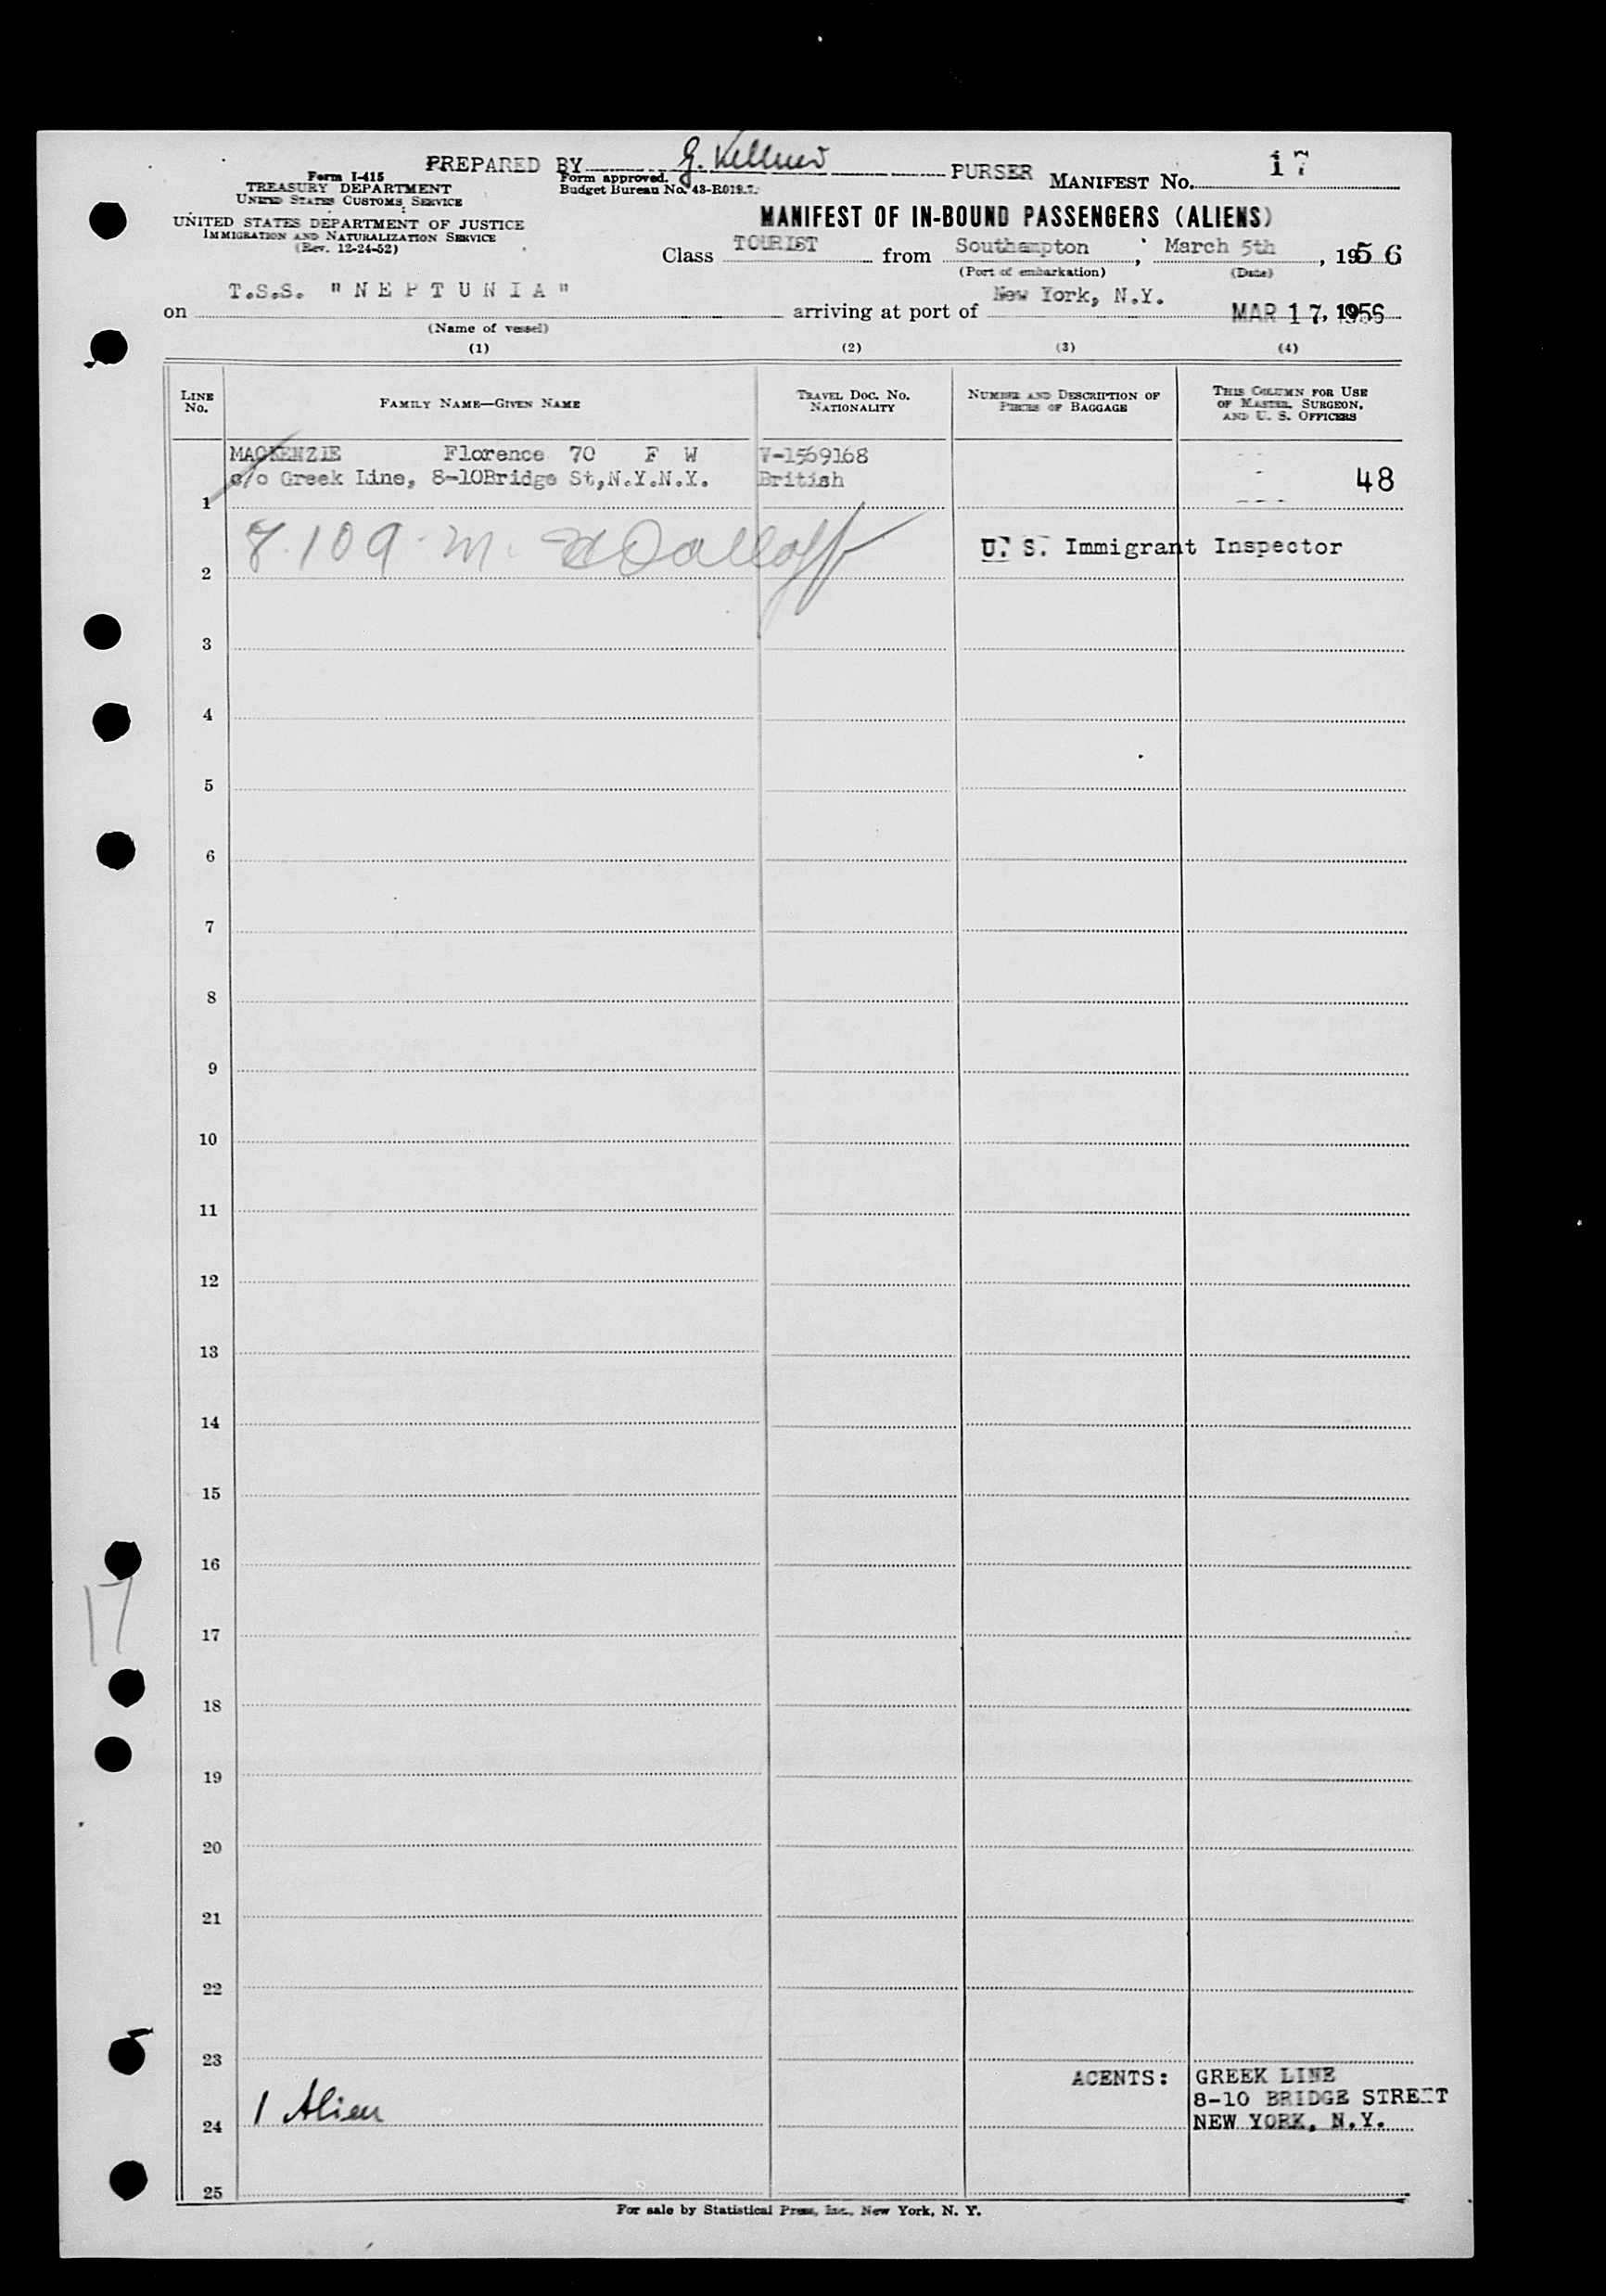 PREPARED BY G. Kellner PURSER
Form I-415
TREASURY DEPARTMENT
UNITED STATES CUSTOMS SERVICE
UNITED STATES DEPARTMENT OF JUSTICE
IMMIGRATION AND NATURALIZATION SERVICE
(Rev. 12-24-52)
Form approved.
Budget Bureau No. 43-R019.7.
MANIFEST No. 17
MANIFEST OF IN-BOUND PASSENGERS (ALIENS)
Class TOURIST from Southampton, March 5th, 1956
(Port of embarkation) (Date)
on T.S.S. "NEPTUNIA" arriving at port of New York, N.Y. MAR 17, 1956
(Name of vessel)
(1) (2) (3) (4)
LINE No.
FAMILY NAME—GIVEN NAME
TRAVEL DOC. No. NATIONALITY
NUMBER AND DESCRIPTION OF PIECES OF BAGGAGE
THIS COLUMN FOR USE OF MASTER, SURGEON, AND U. S. OFFICERS
MACKENZIE Florence 70 F W V-1569168
c/o Greek Line, 8-10Bridge St,N.Y.N.Y. British 48
1
7.109. M.
U. S. Immigrant Inspector
2
3
4
5
6
7
8
9
10
11
12
13
14
15
16
17
17
18
19
20
21
22
23
AGENTS: GREEK LINE
8-10 BRIDGE STREET
NEW YORK, N.Y.
1 Alien
24
25
For sale by Statistical Press, Inc., New York, N. Y.